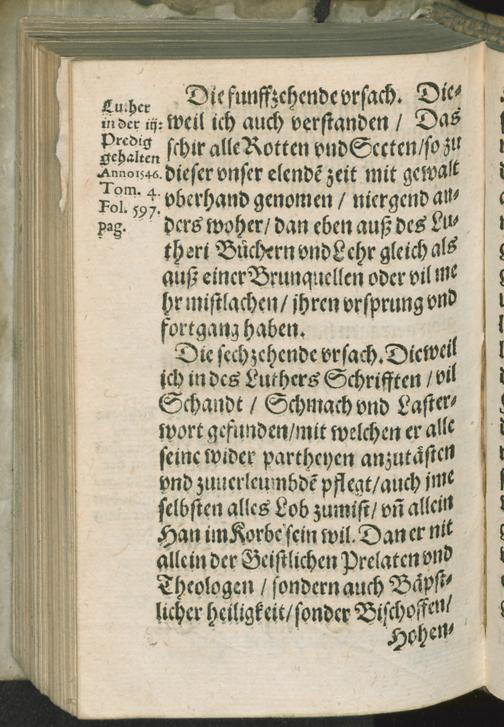 Luther
in der iij:
Predig
gehalten
Anno 1546.
Tom. 4.
Fol. 597.
pag.
Die funffzehende vrsach. Die-
weil ich auch verstanden / Das
schir alle Rotten vnd Secten / so zu
dieser vnser elendē zeit mit gewalt
vberhand genomen / niergend an-
ders woher / dan eben auß des Lu-
theri Büchern vnd Lehr gleich als
auß einer Brunquellen oder vil me
hr mistlachen / jhren vrsprung vnd
fortgang haben.
Die sechzehende vrsach. Dieweil
ich in des Luthers Schrifften / vil
Schandt / Schmach vnd Laster-
wort gefunden / mit welchen er alle
seine wider partheyen anzutästen
vnd zuuerleumbdē pflegt / auch jme
selbsten alles Lob zumist / vn̄ allein
Han im Korbe sein wil. Dan er nit
allein der Geistlichen Prelaten vnd
Theologen / sondern auch Bäpst-
licher heiligkeit / sonder Bischoffen /
Hohen-